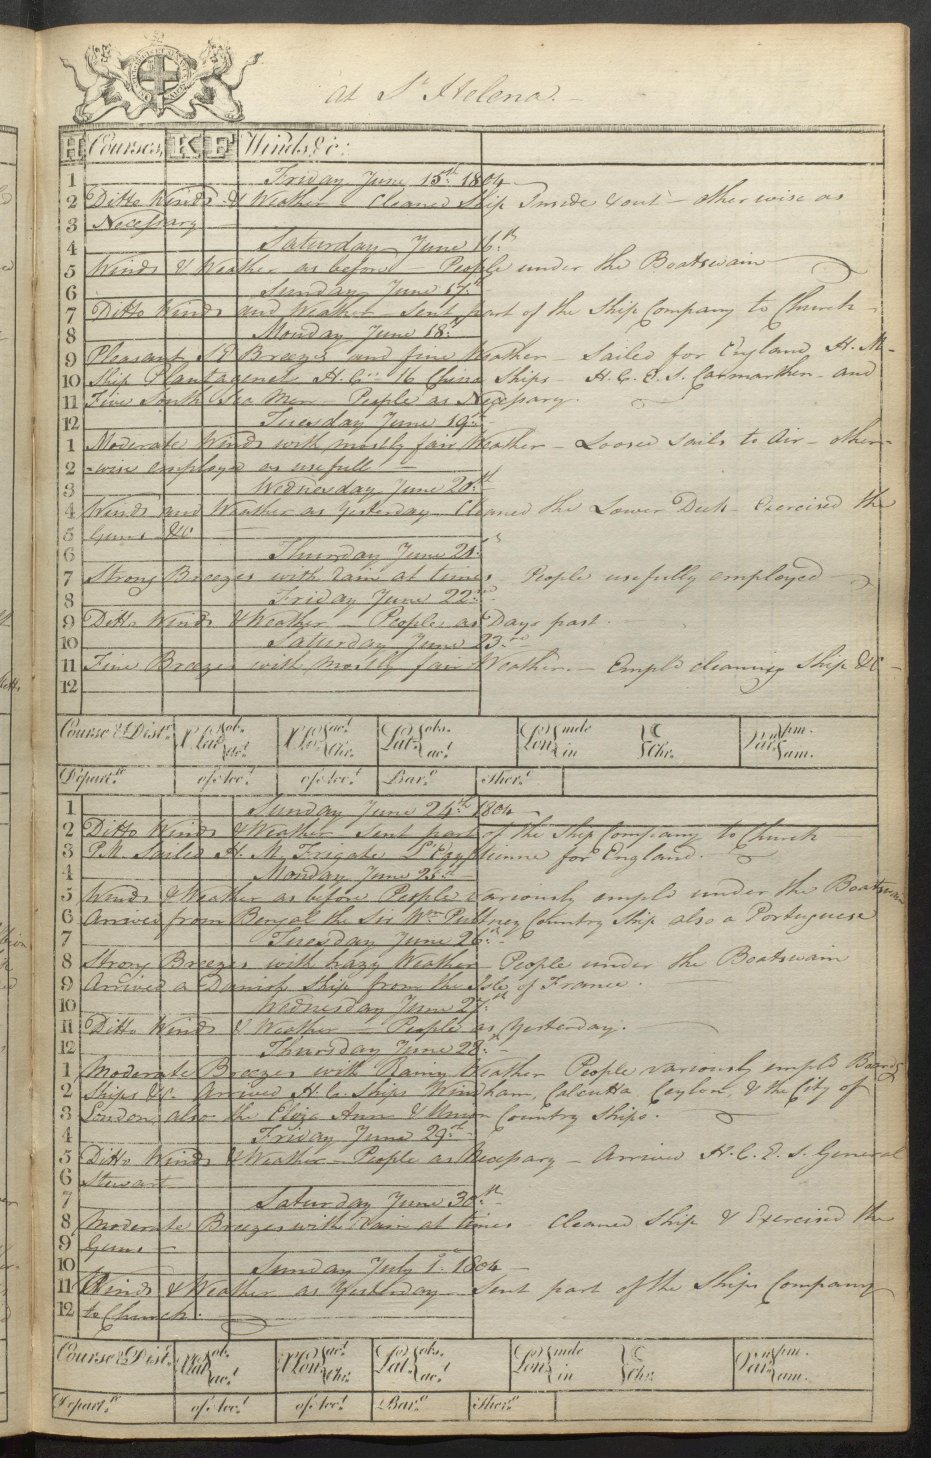 at St Helena. -
H Courses, K F Winds, &c:
1 Friday June 15th 1804
2 Ditto Winds & Weather Cleaned Ship Inside & out - otherwise as
3 Necessary
4 Saturday June 16th
5 Winds & Weather as before People under the Boatswain
6 Sunday June 17th
7 Ditto Winds and Weather - Sent part of the Ship Company to Church -
8 Monday June 18th
9 Pleasant S E Breezes and fine Weather - Sailed for England H. M.
10 Ship Plantagenet H. Cos 16 China Ships - H. C. E. S. Carmarthen - and
11 Five South Sea Men - People as Necessary.
12 Tuesday June 19th
1 Moderate Winds with mostly fair Weather - Loosed Sails to Air - other=
2 =wise employed as usefull -
3 Wednesday June 20th
4 Winds and Weather as Yesterday - Cleaned the Lower Deck - Exercised the
5 Guns &c
6 Thursday June 21st
7 Strong Breezes with rain at times People usefully employed
8 Friday June 22nd
9 Ditto Winds & Weather - People as Days past.
10 Saturday June 23rd
11 Fine Breezes with mostly fair Weather - Empld cleaning Ship &c -
12
Course & Dist. Lat ob. ac.t Lon ac.t Chr. Lat. obs. ac.t Lon made in Chr. Var. pm. am.
Depart.re of &c.t of &c.t Bar.r Ther.r
1 Sunday June 24th 1804
2 Ditto Winds & Weather Sent part of the Ship Company to Church
3 P.M. Sailed H. M. Frigate L'Egyptienne for England.
4 Monday June 25th
5 Winds & Weather as before People variously empld under the Boatswain
6 Arrived from Bengal the Sir Wm Pultney Country Ship also a Portuguese
7 Tuesday June 26th
8 Strong Breezes with hazy Weather - People under the Boatswain
9 Arrived a Danish Ship from the Isle of France.
10 Wednesday June 27th
11 Ditto Winds & Weather - People as Yesterday.
12 Thursday June 28th
1 Moderate Breezes with Rainy Weather People variously empld
2 Ships &c. Arrived H. C. Ships Windham, Calcutta, Ceylon, & the City of
3 London also the Eliza Ann & Union Country Ships.
4 Friday June 29th
5 Ditto Winds & Weather - People as Necessary - Arrived H. C. E. S. General
6 Stewart
7 Saturday June 30th
8 Moderate Breezes with Rain at times Cleaned Ship & Exercised the
9 Guns -
10 Sunday July 1st 1804
11 Winds & Weather as Yesterday - Sent part of the Ships Company
12 to Church.
Course & Dist. Lat ob. ac.t Lon ac.t Chr. Lat. obs. ac.t Lon made in Chr. Var. pm. am.
Depart.re of &c.t of &c.t Bar.r Ther.r